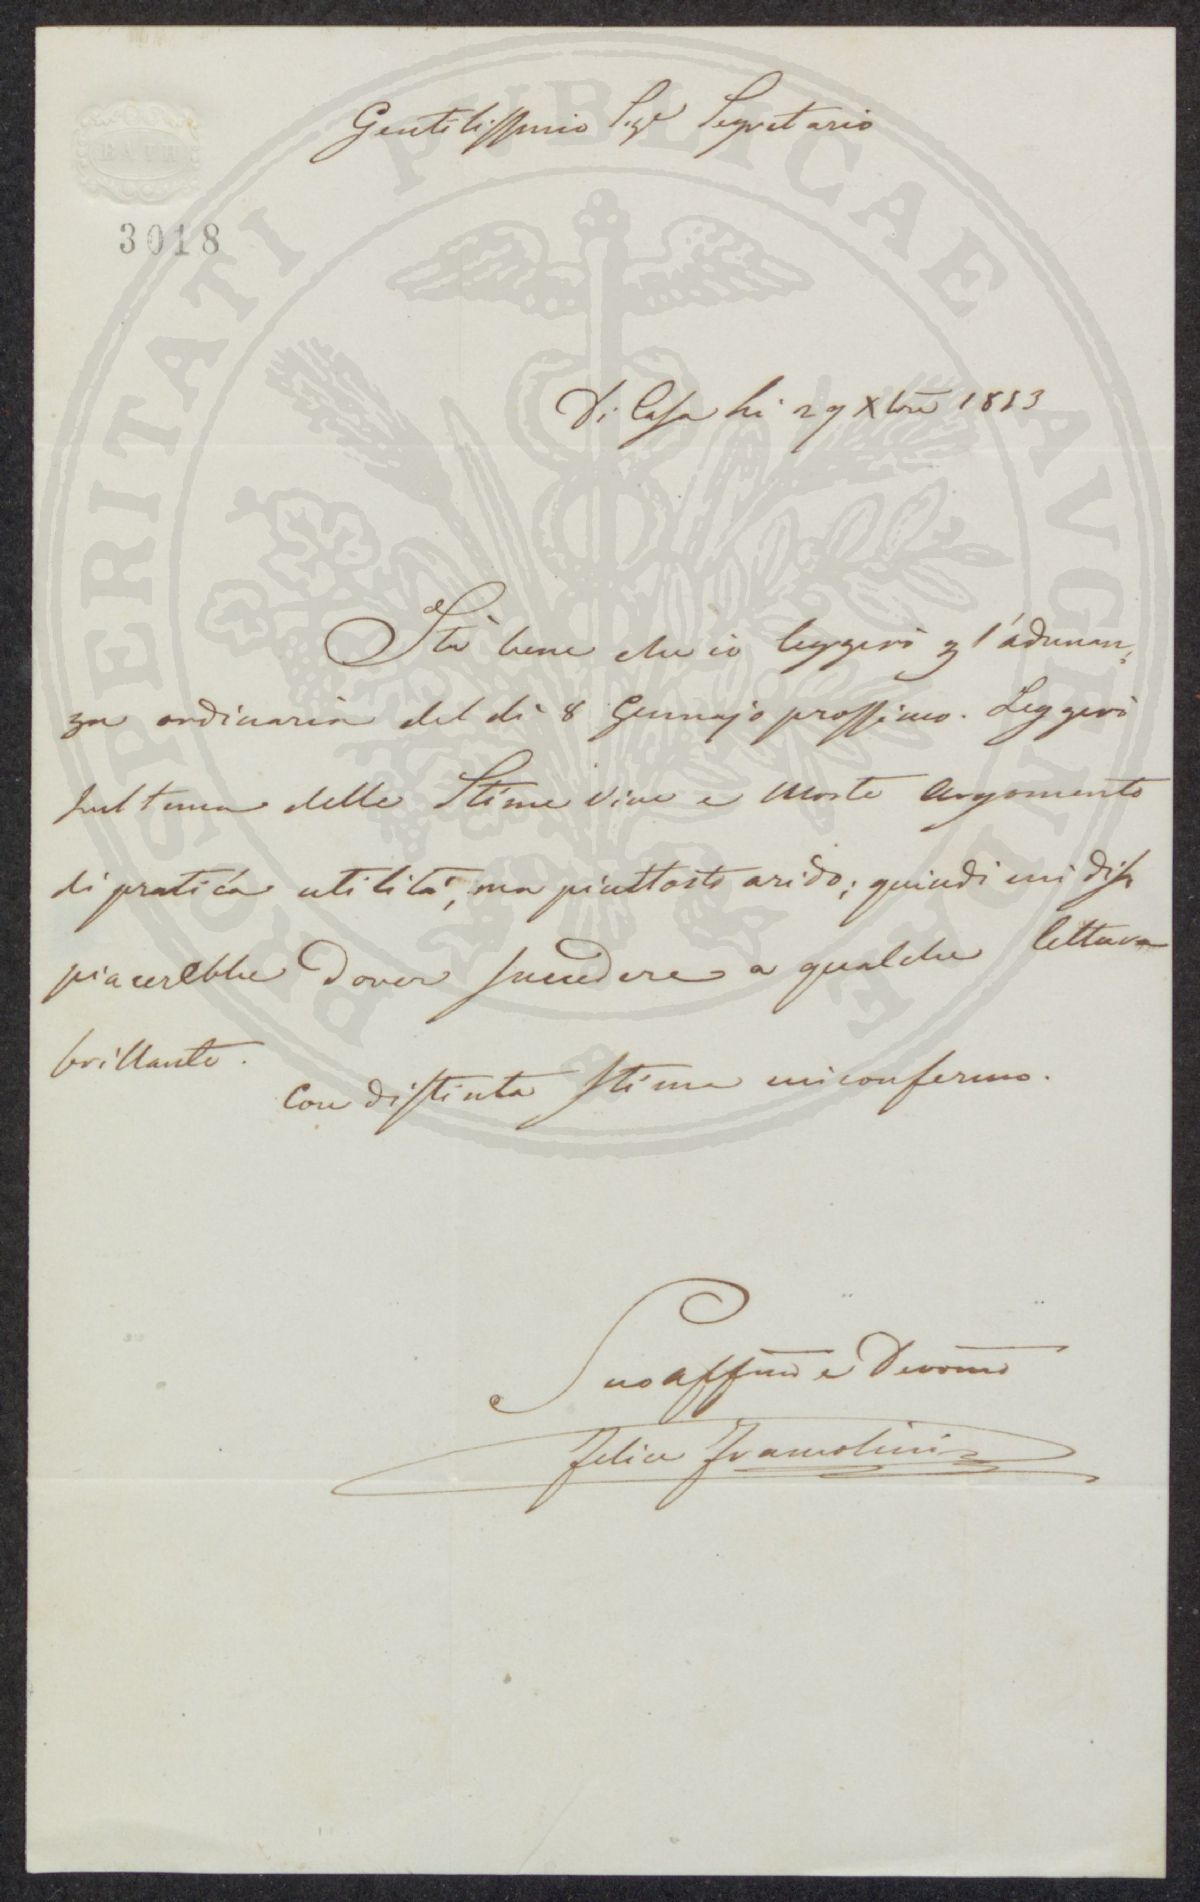 BATH
3018
PROSPERITATI PUBLICAE AVGENDAE
Gentilissimo Sigr Segretario
Di Casa li 29 Xbre 1853
Sta bene che io leggerò p l'adunan,
za ordinaria del dì 8 Gennajo prossimo. Leggerò
sul tema delle Stime Vive e Morte argomento
di pratica utilità, ma piuttosto arido; quindi mi dis
piacerebbe Dover succedere a qualche lettura
brillante.
Con distinta stima mi confermo.
Suo affmo e Devomo
Felice Francolini